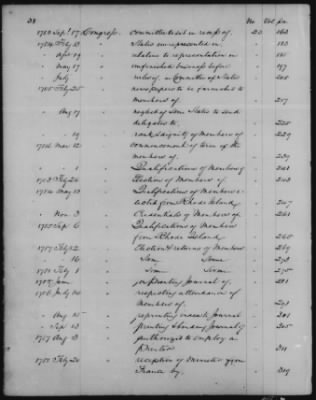 38 No. Vol. pa.
1780 Sept 17 Congress. committee to sit in recess of. 20 163
1784 Feby 13 States unrepresented in 183
" Apr 19 relative to representation in 185
" May 17 unfinished business before 197
" July recess of, a Committee of States 205
1785 Feby 25 newspapers to be furnished to
members of. 217
" Aug 17 neglect of some States to send
delegates to. 225
" " 19 rank & dignity of members of 229
1786 Mar 12 commencement of term of the
members of. 239
" " Qualifications of Members of 241
1783 Feby 26 Election of Members of 243
1784 May 13 Qualifications of Members
elected from Rhode Island, 247
" Nov 3 Credentials of Members of 261
1785 Sept 6 Qualifications of Members
from Rhode Island 265
1787 Feby 12 Election & returns of Members 269
" " 16 Same Same 273
1781 Feby 1 Same Same 275
Jan printing Journal of. 281
1786 July 14 respecting attendance of
Members of. 293
" Aug 15 reprinting index to Journal 301
" Sept 13 printing & binding Journal of 305
1787 Aug 13 authorized to employ a
Printer 311
Feby 20 reception of Minister from
France by. 319